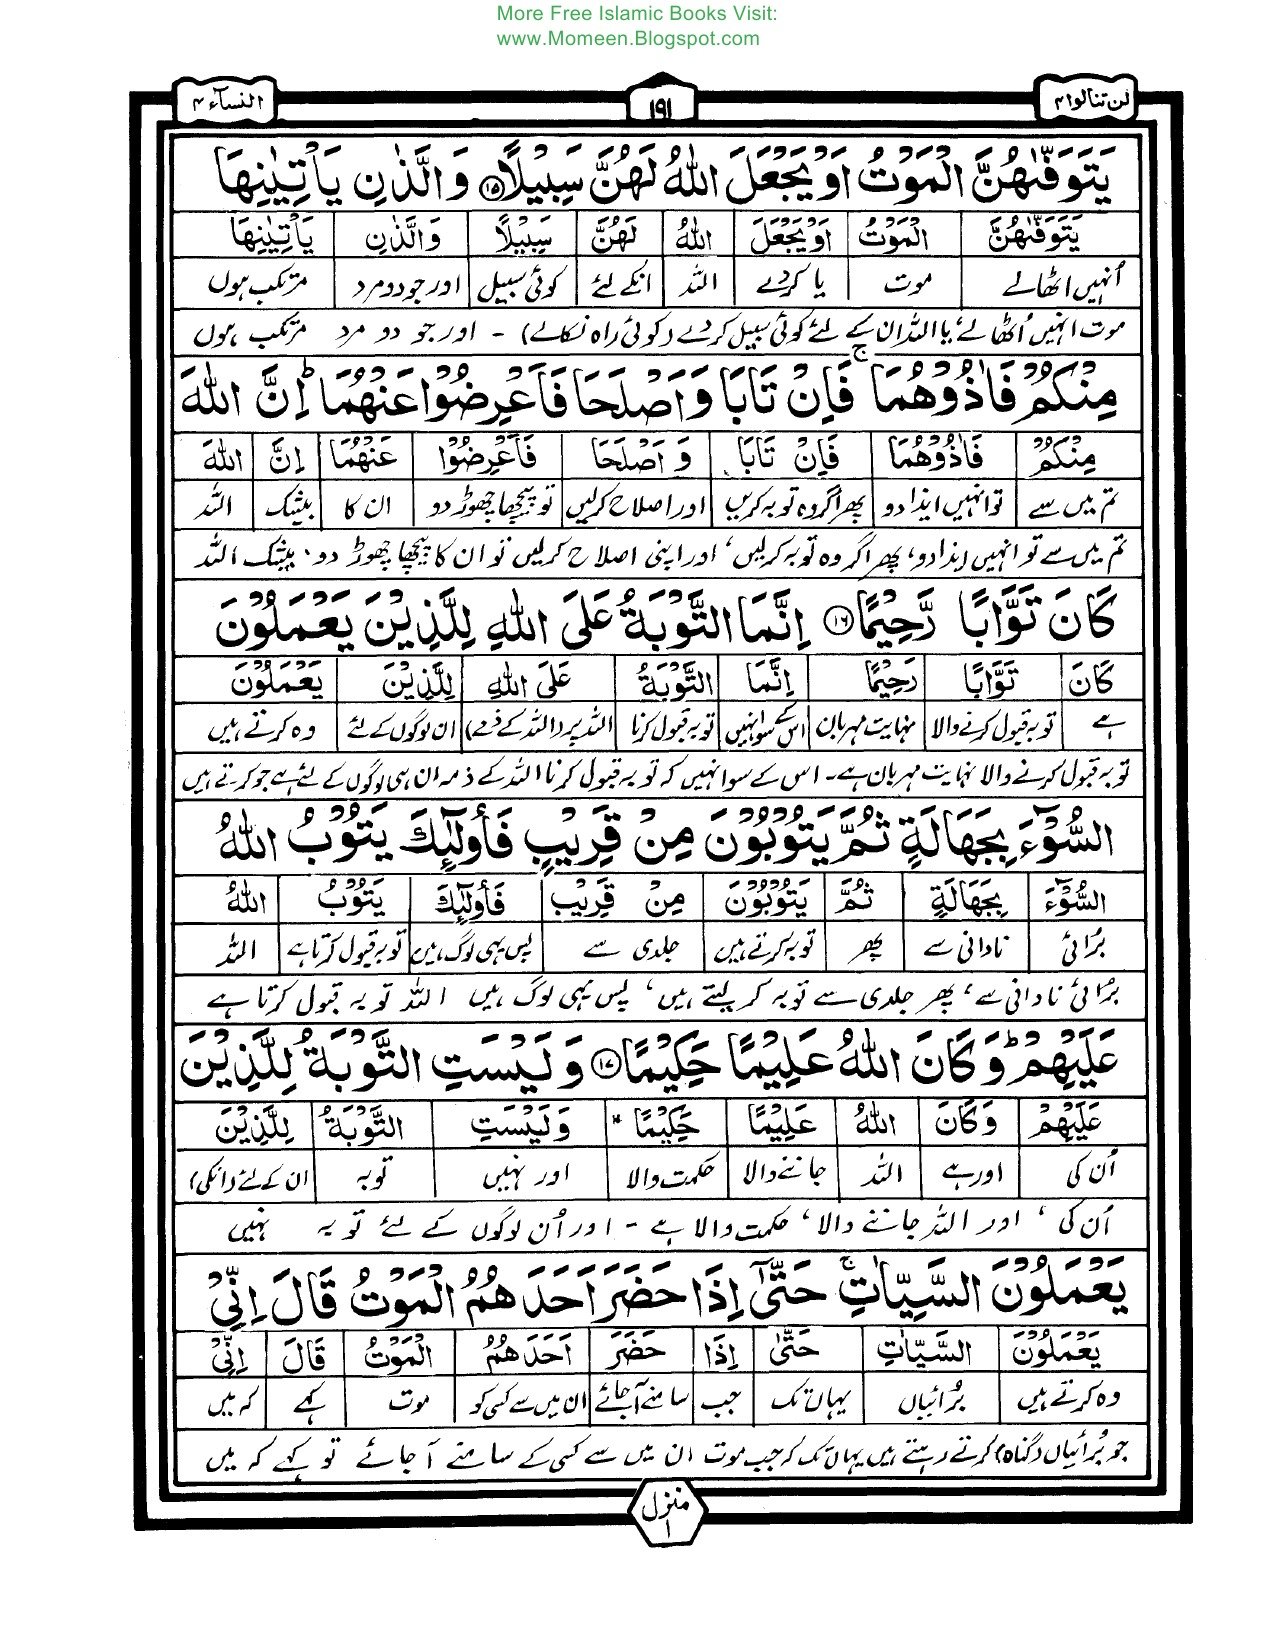 More Free Islamic Books Visit:
www.Momeen.Blogspot.com
لن تنالوا ۴ ۱۹۱ النسآء ۴
يَتَوَفّٰىهُنَّ الْمَوْتُ اَوْ يَجْعَلَ اللّٰهُ لَهُنَّ سَبِيْلًا ۝۱۵ وَ الَّذٰنِ يَاْتِيٰنِهَا
يَتَوَفّٰىهُنَّ الْمَوْتُ اَوْ يَجْعَلَ اللّٰهُ لَهُنَّ سَبِيْلًا وَالَّذٰنِ يَاْتِيٰنِهَا
اُنہیں اٹھالے موت یا کردے اللہ انکے لئے کوئی سبیل اور جو دو مرد مرتکب ہوں
موت انہیں اُٹھالے، یا اللہ ان کے لئے کوئی سبیل کردے (کوئی راہ نکالے) - اور جو دو مرد مرتکب ہوں
مِنْكُمْ فَاٰذُوْهُمَا ۚ فَاِنْ تَابَا وَ اَصْلَحَا فَاَعْرِضُوْا عَنْهُمَا ؕ اِنَّ اللّٰهَ
مِنْكُمْ فَاٰذُوْهُمَا فَاِنْ تَابَا وَ اَصْلَحَا فَاَعْرِضُوْا عَنْهُمَا اِنَّ اللّٰهَ
تم میں سے تو انہیں ایذا دو پھر اگر وہ توبہ کریں اور اصلاح کرلیں تو پیچھا چھوڑ دو ان کا بیشک اللہ
تم میں سے تو انہیں ایذا دو، پھر اگر وہ توبہ کرلیں، اور اپنی اصلاح کرلیں تو ان کا پیچھا چھوڑ دو، بیشک اللہ
كَانَ تَوَّابًا رَّحِيْمًا ۝۱۶ اِنَّمَا التَّوْبَةُ عَلَى اللّٰهِ لِلَّذِيْنَ يَعْمَلُوْنَ
كَانَ تَوَّابًا رَحِيْمًا اِنَّمَا التَّوْبَةُ عَلَى اللّٰهِ لِلَّذِيْنَ يَعْمَلُوْنَ
ہے توبہ قبول کرنے والا نہایت مہربان اس کے سوا نہیں توبہ قبول کرنا اللہ پر (اللہ کے ذمے) ان لوگوں کے لئے وہ کرتے ہیں
توبہ قبول کرنے والا نہایت مہربان ہے۔ اس کے سوا نہیں کہ توبہ قبول کرنا اللہ کے ذمہ ان ہی لوگوں کے لئے ہے جو کرتے ہیں
السُّوْٓءَ بِجَهَالَةٍ ثُمَّ يَتُوْبُوْنَ مِنْ قَرِيْبٍ فَاُولٰٓئِكَ يَتُوْبُ اللّٰهُ
السُّوْٓءَ بِجَهَالَةٍ ثُمَّ يَتُوْبُوْنَ مِنْ قَرِيْبٍ فَاُولٰٓئِكَ يَتُوْبُ اللّٰهُ
بُرائی نادانی سے پھر توبہ کرتے ہیں جلدی سے پس یہی لوگ ہیں توبہ قبول کرتا ہے اللہ
بُرائی نادانی سے، پھر جلدی سے توبہ کرلیتے ہیں، پس یہی لوگ ہیں اللہ توبہ قبول کرتا ہے
عَلَيْهِمْ ؕ وَ كَانَ اللّٰهُ عَلِيْمًا حَكِيْمًا ۝۱۷ وَ لَيْسَتِ التَّوْبَةُ لِلَّذِيْنَ
عَلَيْهِمْ وَ كَانَ اللّٰهُ عَلِيْمًا حَكِيْمًا وَ لَيْسَتِ التَّوْبَةُ لِلَّذِيْنَ
اُن کی اور ہے اللہ جاننے والا حکمت والا اور نہیں توبہ ان کے لئے (انکی)
اُن کی، اور اللہ جاننے والا، حکمت والا ہے - اور اُن لوگوں کے لئے توبہ نہیں
يَعْمَلُوْنَ السَّيِّاٰتِ ۚ حَتّٰٓى اِذَا حَضَرَ اَحَدَهُمُ الْمَوْتُ قَالَ اِنِّيْ
يَعْمَلُوْنَ السَّيِّاٰتِ حَتّٰى اِذَا حَضَرَ اَحَدَهُمُ الْمَوْتُ قَالَ اِنِّيْ
وہ کرتے ہیں بُرائیاں یہاں تک جب سامنے آجائے ان میں سے کسی کو موت کہے کہ میں
جو بُرائیاں (گناہ) کرتے رہتے ہیں یہاں تک کہ جب موت ان میں سے کسی کے سامنے آجائے تو کہے کہ میں
منزل ۱